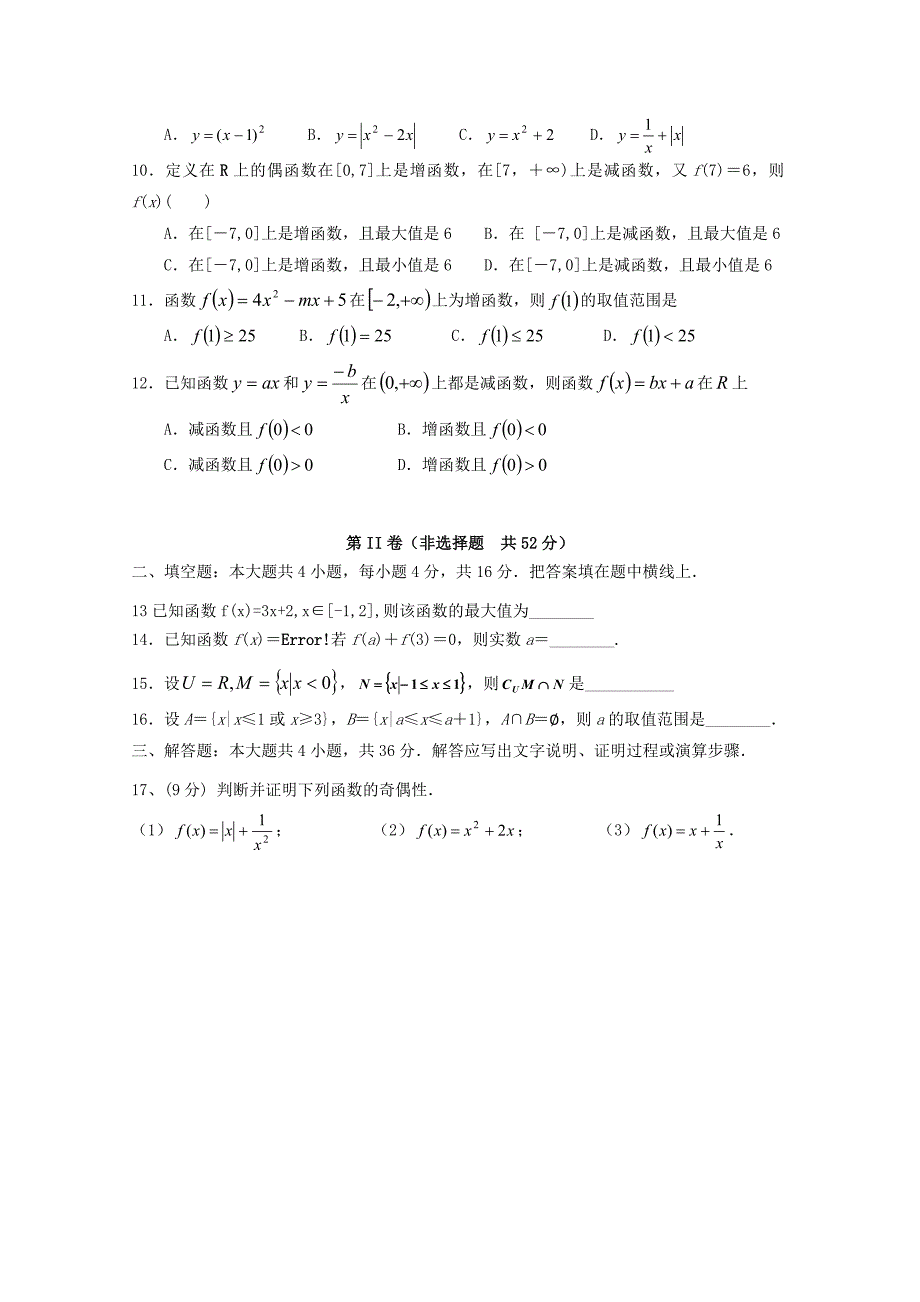 A．y=(x-1)²　B．y=|x²-2x|　C．y=x²+2　D．y=1/x+|x|
10．定义在 R 上的偶函数在[0,7]上是增函数，在[7，＋∞)上是减函数，又 f(7)＝6，则
f(x)(　　)
A．在[－7,0]上是增函数，且最大值是 6　B．在 [－7,0]上是减函数，且最大值是 6
C．在[－7,0]上是增函数，且最小值是 6　D．在[－7,0]上是减函数，且最小值是 6
11．函数 f(x)=4x²-mx+5 在 [-2,+∞) 上为增函数，则 f(1) 的取值范围是
A．f(1)≥25　B．f(1)=25　C．f(1)≤25　D．f(1)<25
12．已知函数 y=ax 和 y=-b/x 在 (0,+∞) 上都是减函数，则函数 f(x)=bx+a 在 R 上
A．减函数且 f(0)<0　B．增函数且 f(0)<0
C．减函数且 f(0)>0　D．增函数且 f(0)>0
第 II 卷（非选择题　共 52 分）
二、填空题：本大题共 4 小题，每小题 4 分，共 16 分．把答案填在题中横线上．
13 已知函数 f(x)=3x+2,x∈[-1,2],则该函数的最大值为________
14．已知函数 f(x)＝Error!若 f(a)＋f(3)＝0，则实数 a＝________．
15．设 U=R,M={x|x<0}，N={x|-1≤x≤1}，则 C_U M∩N 是___________
16．设 A＝{x|x≤1 或 x≥3}，B＝{x|a≤x≤a＋1}，A∩B＝∅，则 a 的取值范围是________．
三、解答题：本大题共 4 小题，共 36 分．解答应写出文字说明、证明过程或演算步骤．
17、(9 分) 判断并证明下列函数的奇偶性．
（1）f(x)=|x|+1/x²；　（2）f(x)=x²+2x；　（3）f(x)=x+1/x．